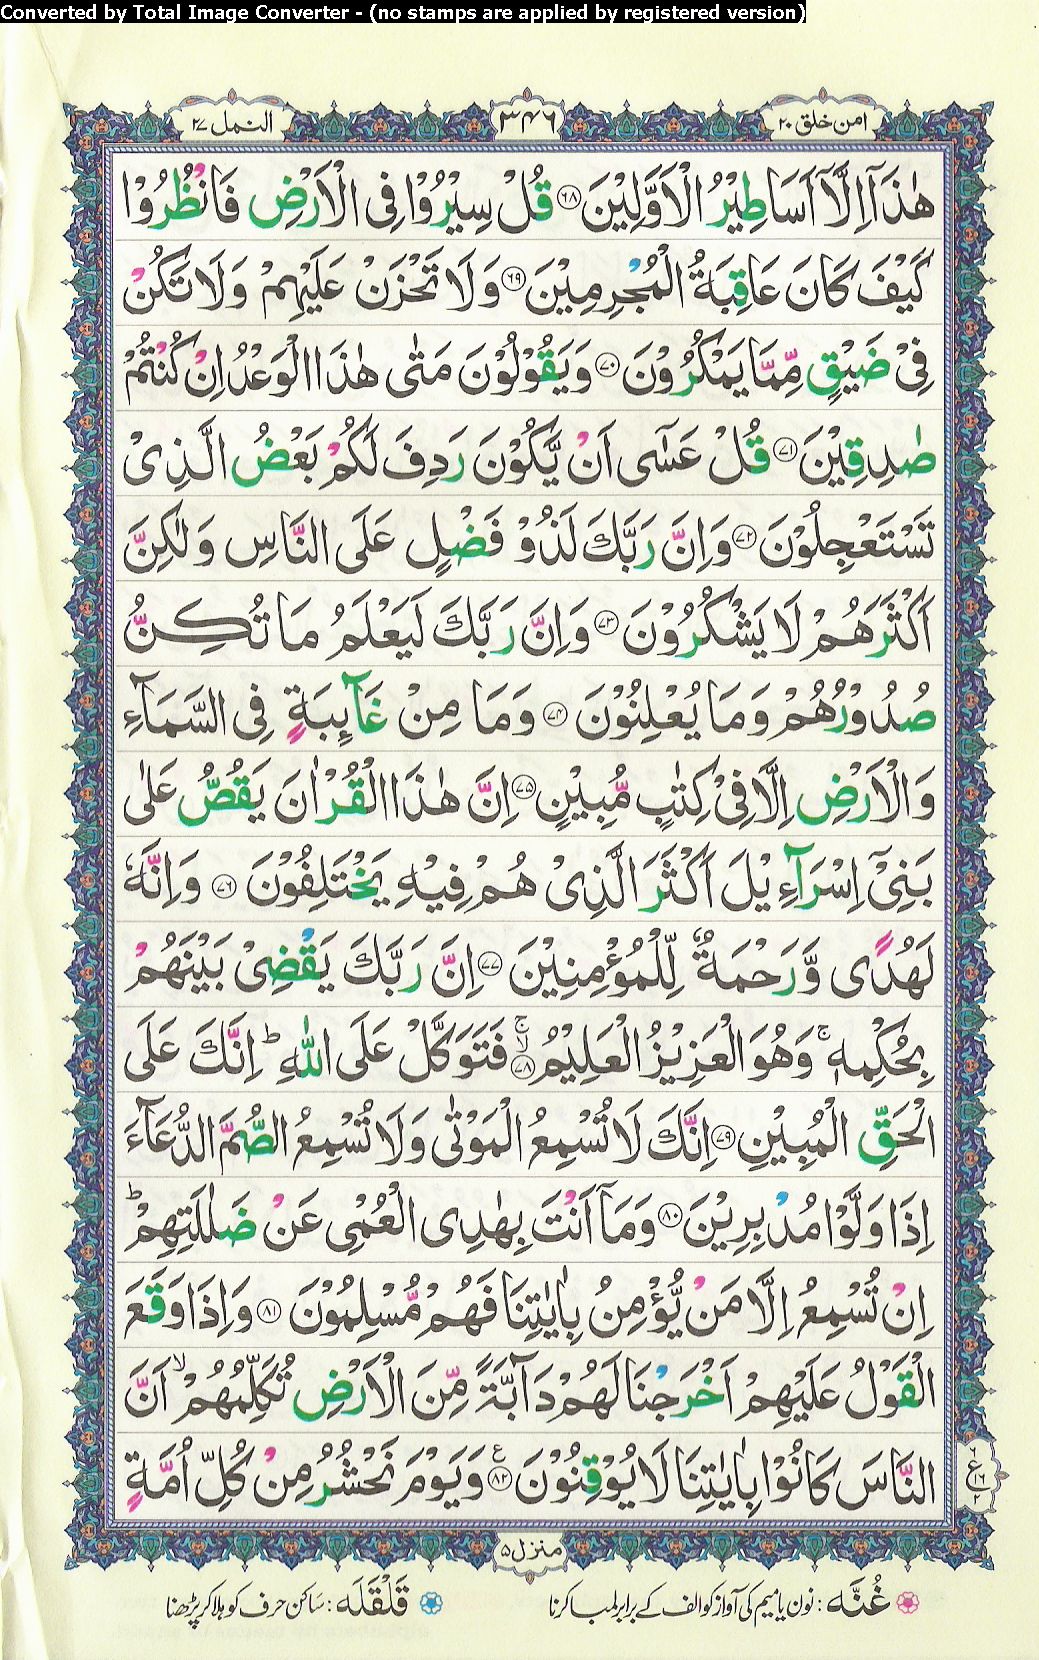 Converted by Total Image Converter - (no stamps are applied by registered version)
امن خلق ۲۰
۳۴۶
النمل ۲۷
هٰذَاۤ اِلَّاۤ اَسَاطِیْرُ الْاَوَّلِیْنَ ﴿۶۸﴾ قُلْ سِیْرُوْا فِی الْاَرْضِ فَانْظُرُوْا
كَیْفَ كَانَ عَاقِبَةُ الْمُجْرِمِیْنَ ﴿۶۹﴾ وَلَا تَحْزَنْ عَلَیْهِمْ وَلَا تَكُنْ
فِیْ ضَیْقٍ مِّمَّا یَمْكُرُوْنَ ﴿۷۰﴾ وَیَقُوْلُوْنَ مَتٰی هٰذَا الْوَعْدُ اِنْ كُنْتُمْ
صٰدِقِیْنَ ﴿۷۱﴾ قُلْ عَسٰۤی اَنْ یَّكُوْنَ رَدِفَ لَكُمْ بَعْضُ الَّذِیْ
تَسْتَعْجِلُوْنَ ﴿۷۲﴾ وَاِنَّ رَبَّكَ لَذُوْ فَضْلٍ عَلَی النَّاسِ وَلٰكِنَّ
اَكْثَرَهُمْ لَا یَشْكُرُوْنَ ﴿۷۳﴾ وَاِنَّ رَبَّكَ لَیَعْلَمُ مَا تُكِنُّ
صُدُوْرُهُمْ وَمَا یُعْلِنُوْنَ ﴿۷۴﴾ وَمَا مِنْ غَآئِبَةٍ فِی السَّمَآءِ
وَالْاَرْضِ اِلَّا فِیْ كِتٰبٍ مُّبِیْنٍ ﴿۷۵﴾ اِنَّ هٰذَا الْقُرْاٰنَ یَقُصُّ عَلٰی
بَنِیْۤ اِسْرَآءِیْلَ اَكْثَرَ الَّذِیْ هُمْ فِیْهِ یَخْتَلِفُوْنَ ﴿۷۶﴾ وَاِنَّهٗ
لَهُدًی وَّرَحْمَةٌ لِّلْمُؤْمِنِیْنَ ﴿۷۷﴾ اِنَّ رَبَّكَ یَقْضِیْ بَیْنَهُمْ
بِحُكْمِهٖ ۚ وَهُوَ الْعَزِیْزُ الْعَلِیْمُ ﴿۷۸﴾ۙۚ فَتَوَكَّلْ عَلَی اللّٰهِ ؕ اِنَّكَ عَلَی
الْحَقِّ الْمُبِیْنِ ﴿۷۹﴾ اِنَّكَ لَا تُسْمِعُ الْمَوْتٰی وَلَا تُسْمِعُ الصُّمَّ الدُّعَآءَ
اِذَا وَلَّوْا مُدْبِرِیْنَ ﴿۸۰﴾ وَمَاۤ اَنْتَ بِهٰدِی الْعُمْیِ عَنْ ضَلٰلَتِهِمْ ؕ
اِنْ تُسْمِعُ اِلَّا مَنْ یُّؤْمِنُ بِاٰیٰتِنَا فَهُمْ مُّسْلِمُوْنَ ﴿۸۱﴾ وَاِذَا وَقَعَ
الْقَوْلُ عَلَیْهِمْ اَخْرَجْنَا لَهُمْ دَآبَّةً مِّنَ الْاَرْضِ تُكَلِّمُهُمْ ۙ اَنَّ
النَّاسَ كَانُوْا بِاٰیٰتِنَا لَا یُوْقِنُوْنَ ﴿۸۲﴾ ع وَیَوْمَ نَحْشُرُ مِنْ كُلِّ اُمَّةٍ
۶ ع ۱۶ ۲
منزل ۵
غُنَّه : نون یا میم کی آواز کو الف کے برابر لمبا کرنا
قَلْقَلَه : ساکن حرف کو ہلا کر پڑھنا